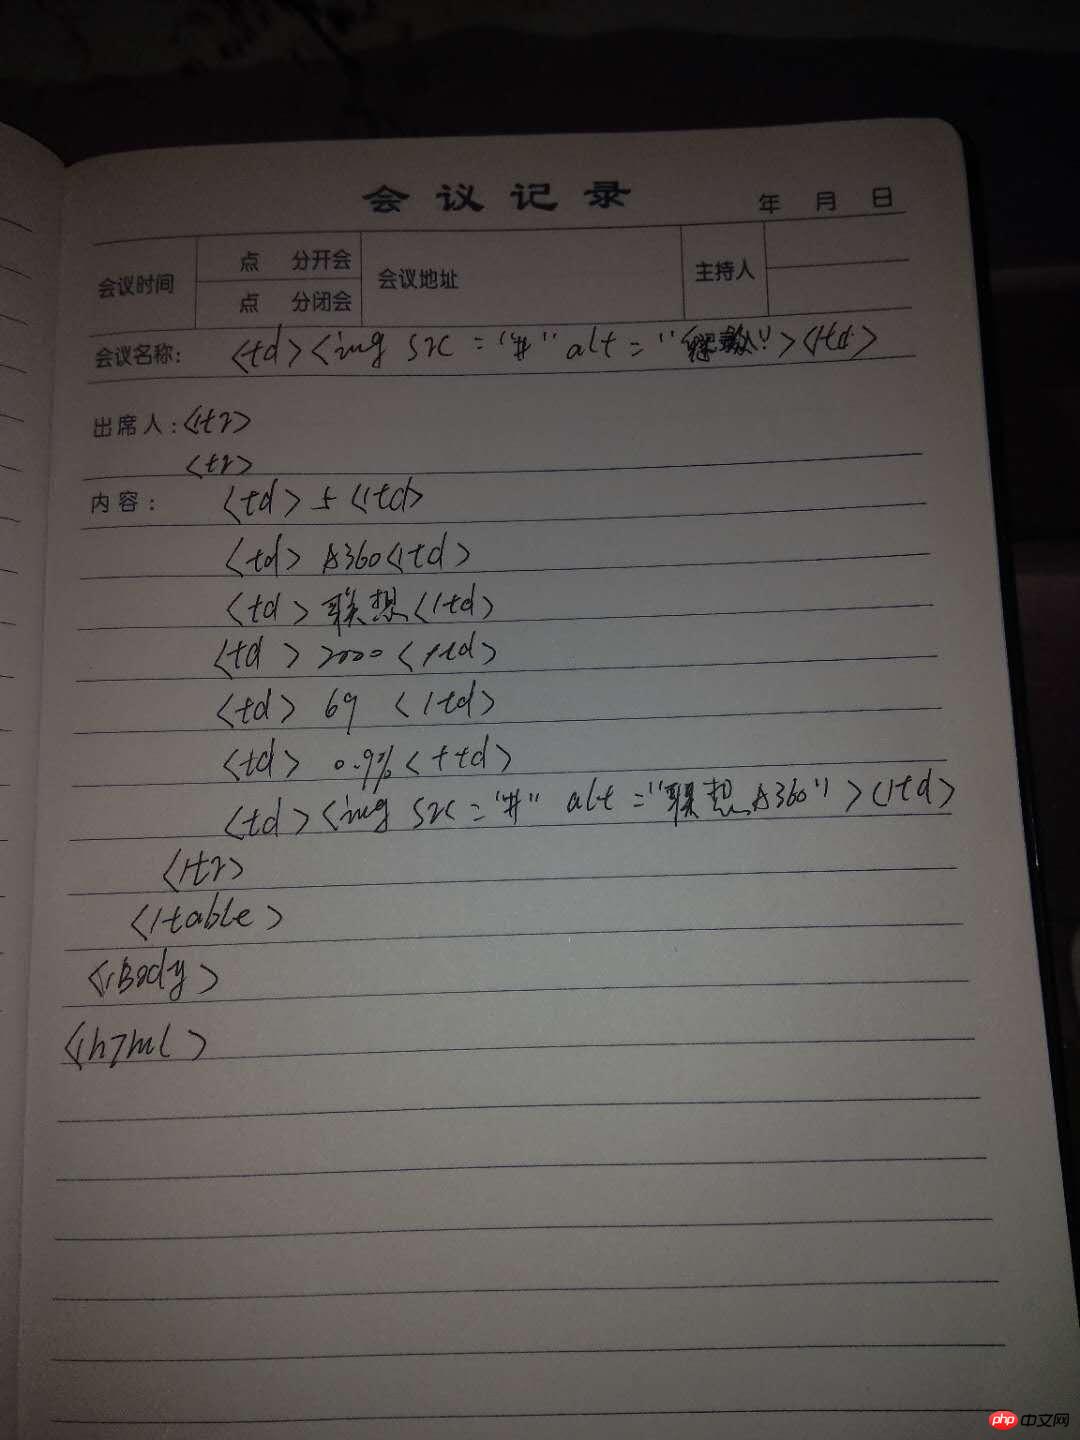 会议记录
年 月 日
会议时间 点 分开会 会议地址 主持人
点 分闭会
会议名称: <td><img src="#" alt="
"></td>
出席人: </tr>
<tr>
内容: <td>5</td>
<td>A360</td>
<td>联想</td>
<td>2000</td>
<td>69</td>
<td>0.9%</td>
<td><img src="#" alt="联想A360"></td>
</tr>
</table>
</Body>
</html>
php 中文网